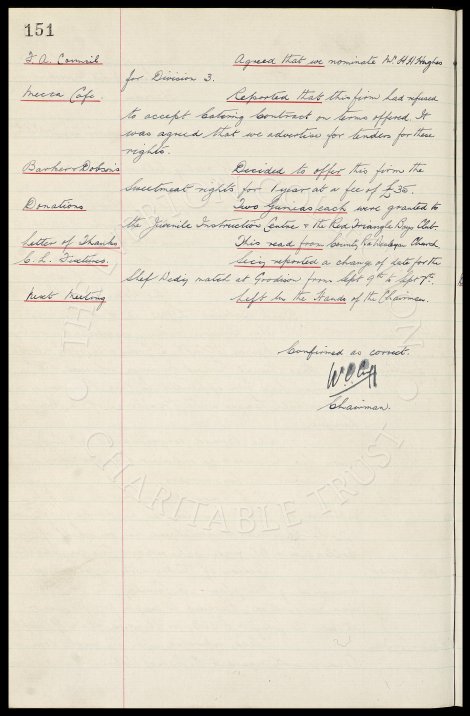 151
F. A. Council Agreed that we nominate Mr H H Hughes
for Division 3.
Mecca Cafe Reported that this firm had refused
to accept Catering Contract on terms offered. It
was agreed that we advertise for tenders for these
rights.
Barker & Dobson's Decided to offer this firm the
Sweetmeat rights for 1 year at a fee of £35.
Donations Two Guineas each were granted to
the Juvenile Instruction Centre & the Red Triangle Boys Club
Letter of Thanks This read from County Church
C. L. Fixtures. Secy. reported a change of date for the
Shef Wedy match at Goodison from Sept 9th to Sept 7th.
Next Meeting Left in the Hands of the Chairman.
Confirmed as correct.
W.C. Cuff
Chairman.
CHARITABLE TRUST